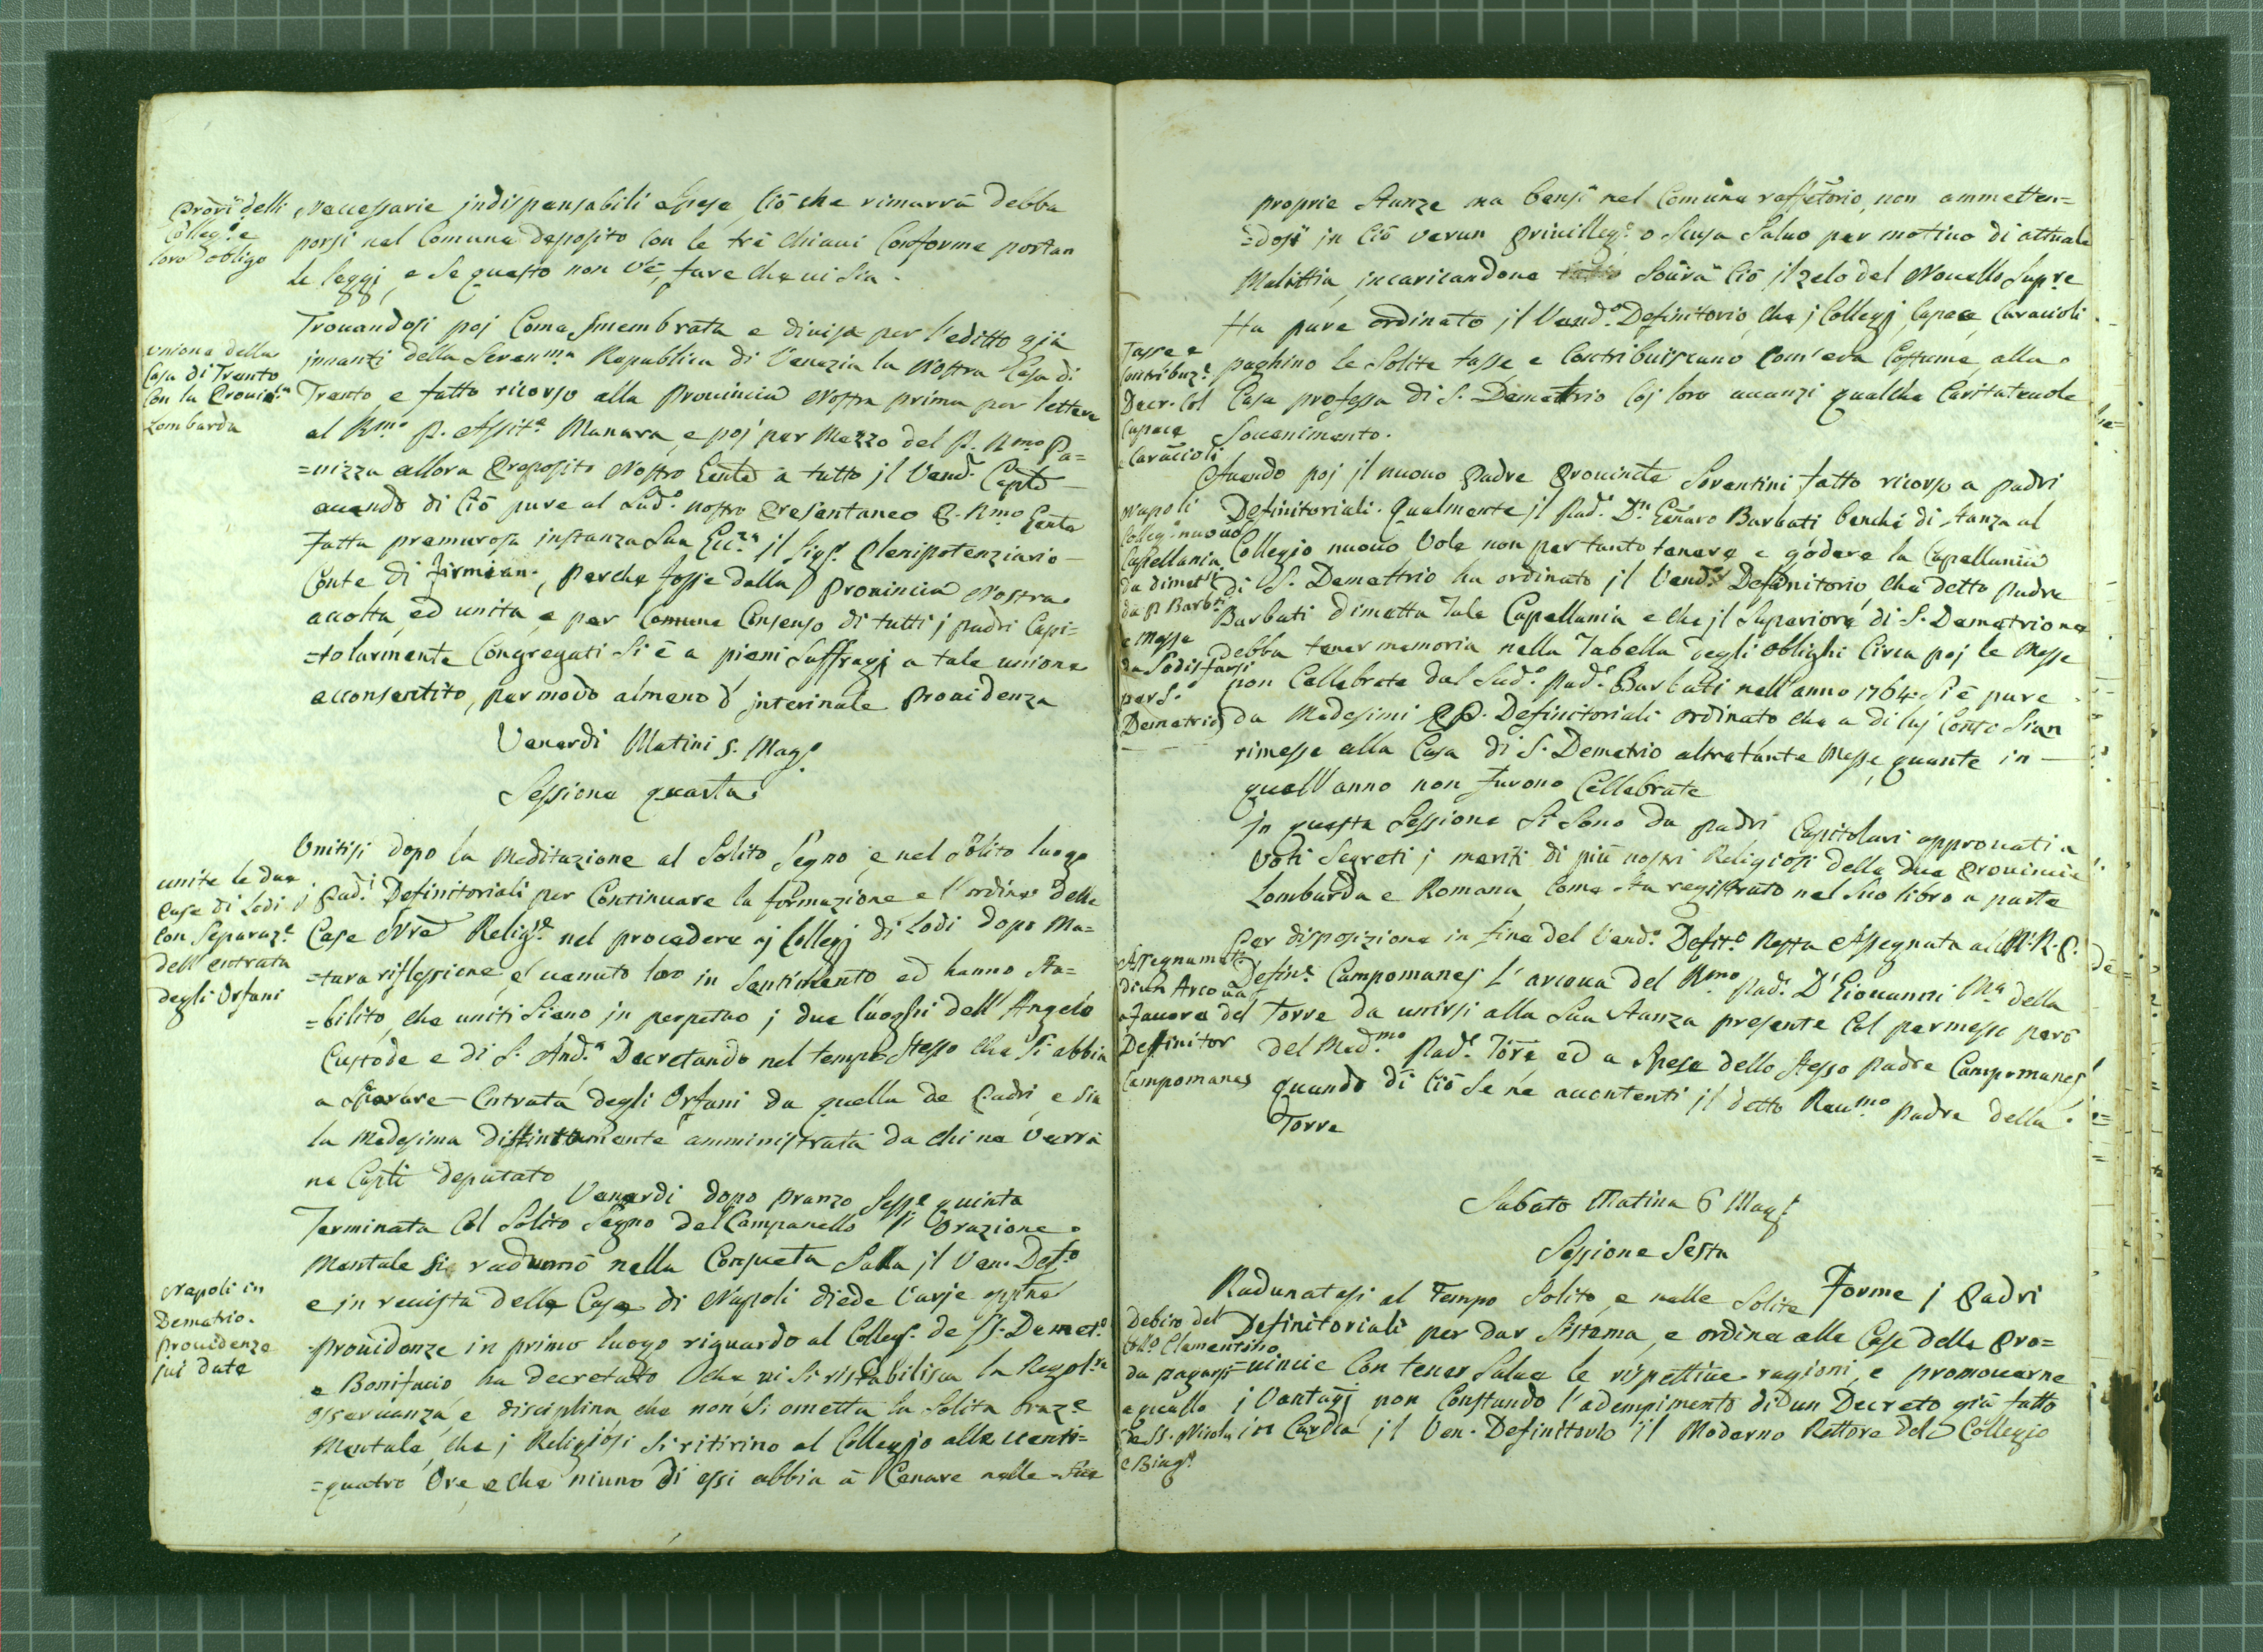 Prori delli
Colleg.o e
loro obligo
Necessarie indispensabili spese Ciò che rimarrà debba
porsi nel Comune deposito con le trè chiavi Conforme portan
le leggi, e se questo non v'è, fare che vi sia.
unione della
Casa di Trento
Con la Provin.a
Lombarda
Trovandosi poi Come smembrata e divisa per l'editto già
innanzi della Seren.ma Republica di Venezia la Nostra Casa di
Trento e fatto ricorso alla Provincia Nostra prima per lettere
al R.mo P. Assit.e Manara, e poi per Mezzo del P. R.mo Pa=
=nizza allora Proposito Nostro Genle a tutto jl Vend. Caplo
avendo di Ciò pure al Sud.o nostro Presentaneo P. R.mo Genle
fatta premurosa instanza Sua Ecc.za jl Sig.r Plenipotenziario
Conte di Firmian, perche fosse dalla Provincia Nostra
accolta, ed unita, e per Comune Consenso di tutti j padri Capi=
=tolarmente Congregati si è a pieni Suffragj a tale unione
acconsentito, per modo almeno d' jnterinale Providenza
Venerdi Matini 5. Mag.o
Sessione quarta
unite le due
Case di Lodi
Con Separaz.e
dell'entrata
degli Orfani
Unitisi dopo la Meditazione al Solito Segno, e nel Solito luogo
j Pad.i Definitoriali per Continuare la formazione e l'ordine delle
Case Nre Relig.e nel procedere aj Collegj di Lodi dopo Ma=
=tura riflessione è venuto loro in Sentimento ed hanno sta=
=bilito, che uniti Siano jn perpetuo j due luoghi dell'Angelo
Custode e di S. And.a Decretando nel tempo Stesso che Si abbia
a Separare Entrata degli Orfani da quella de Padri, e Sia
la Medesima distintamente amministrata da chi ne Verrà
ne Caplj deputato
Venerdi dopo pranzo Sess.e quinta
Terminata Col Solito Segno del Campanello l'Orazione
Mentale Si radunnò nella Consueta Salla jl Ven. Def.o
Napoli in
Demetrio.
providenze
jvi date
e jn revista delle Case di Napoli diede Varje opptne
providenze in primo luogo riguardo al Colleg.o de SS. Demet.o
e Bonifacio ha decretato che vi Si ristabilisca la Regol.re
osservanza, e disciplina che non Si ometta la Solita Oraz.e
Mentale, che j Religiosi Si ritirino al Collegjo alle venti=
=quatro Ore, e che niuno di essi abbia à Cenare nelle Sue
proprie Stanze ma bensì nel Comune reffetorio, non ammetten=
=dosi jn Ciò verun Privilleg.o o Scusa Salvo per motivo di attuale
Malattia, jncaricandone Sovra Ciò jl zelo del Novello Sup.re
Tasse e
contribuz.e
Decr. Col
Capece
e Caraccioli
Ha pure ordinato jl Vend.o Definitorio, che j Collegj Capece Caracioli
paghino le Solite tasse e Contribuiscano Com'era Costume, alla
Casa professa di S. Demettrio Coj loro avanzi qualche Caritatevole
Sovenimento.
Napoli
Colleg.o nuovo
Capellania
da dimet.si
da P. Barb.i
e Messe
da Sodisfarsi
per S.
Demetrio
Avendo poj jl nuovo Padre Provincle Sorentini fatto ricorso a padri
Definitoriali. Qualmente jl Pad.e D.n Genaro Barbati benchè di stanza al
Collegio nuovo Vole non per tanto tenere e godere la Capellania
di S. Demettrio ha ordinato jl Vend.o Definitorio, che detto Padre
Barbati dimetta Tale Capellania e che jl Superiore di S. Demetrio ne
debba tener memoria nella Tabella degli Oblighi Circa poj le Messe
non Cellebrate dal Sud.o Pad.e Barbati nell'anno 1764. Si è pure
da Medesimi PP. Definitoriali ordinato che a di luj Conto Sian
rimesse alla Casa di S. Demetrio altretante Messe, quante in
quell'anno non furono Cellebrate
Jn questa Sessione Si Sono da padri Capitolari approvati a
Voti Segreti j meriti di più nostri Religiosi della due Provincie
Lombarda e Romana, Come sta registrato nel Suo libro a parte
Assegnam.to
di un Arcova
a favore del
Deffinitor
Campomanes
Per disposizione in fine del Vend.o Defit.o Resta Assegnata al M. R. P.
Defin.e Campomanes L'arcova del R.mo Pad.e D. Giovanni M.a della
Torre da unirsi alla Sua Stanza presente Col permesso però
del Med.mo Pad.e Torre ed a Spese dello Stesso Padre Campomanes
quando di Ciò Se ne acontenti jl detto Rev.mo Padre della
Torre
Sabato Matina 6 Mag.o
Sessione Sesta
Debiro del
Coll.o Clementino
da pagarsi
a quello
de SS. Nicola
e Biag.o
Radunatesi al Tempo Solito, e nelle Solite Forme j Padri
Definitoriali per dar Sistema, e ordine alle Case delle Pro=
=vincie Con tener Salve le rispettive ragioni, e promoverne
j Vantagj non Constando l'adempimento di un Decreto già fatto
in Cardia jl Ven. Definitorio jl Moderno Rettore del Collegio